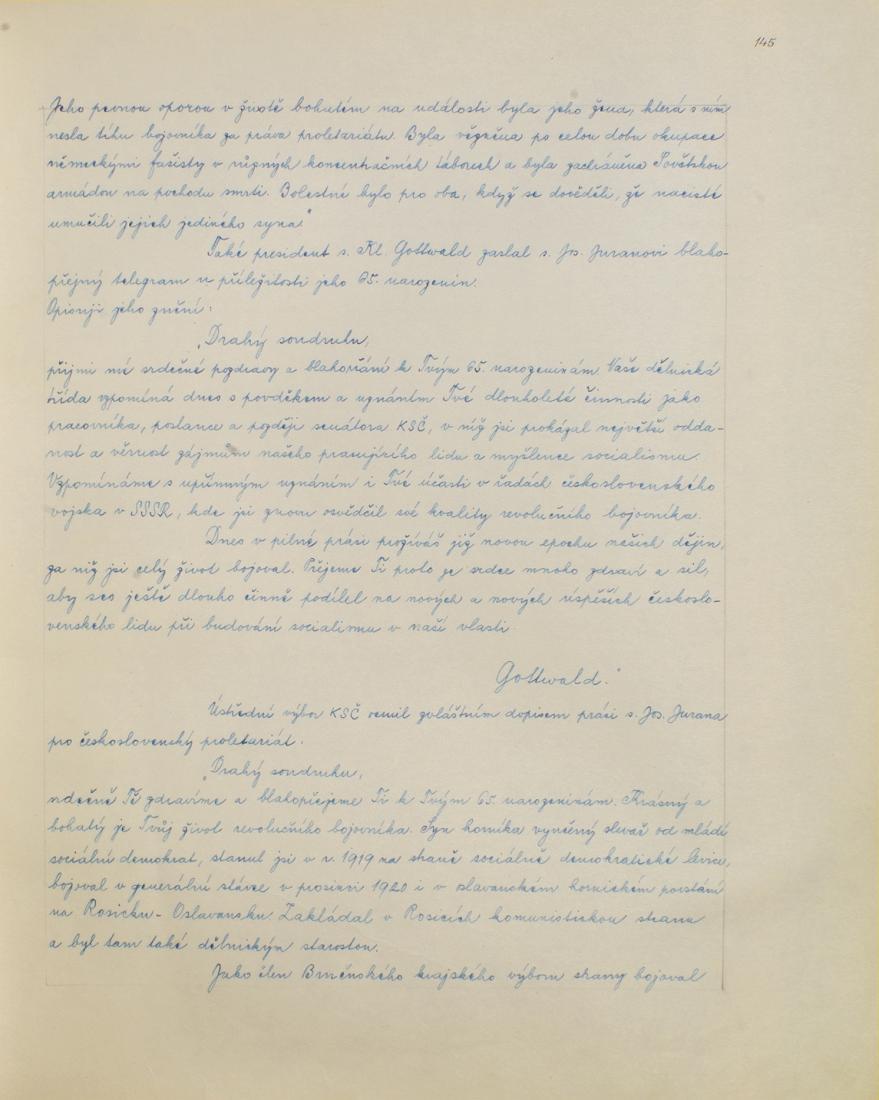 145
Jeho pevnou oporou v životě bohatém na události byla jeho žena, která s ním
nesla tíhu bojovníka za práva proletariátu. Byla vězněna po celou dobu okupace
německými fašisty v různých koncentračních táborech a byla zachráněna Sovětskou
armádou na pochodu smrti. Bolestné bylo pro oba, když se dověděli, že nacisté
umučili jejich jediného syna."
Také president s. Kl. Gottwald zaslal s. Jos. Juranovi blaho-
přejný telegram u příležitosti jeho 65. narozenin.
Opisuji jeho znění:
„Drahý soudruhu,
přijmi mé srdečné pozdravy a blahopřání k Tvým 65. narozeninám. Naše dělnická
třída vzpomíná dnes s povděkem a uznáním Tvé dlouholeté činnosti jako
pracovníka, poslance a později senátora KSČ, v níž jsi prokázal největší odda-
nost a věrnost zájmům našeho pracujícího lidu a myšlence socialismu.
Vzpomínáme s upřímným uznáním i Tvé účasti v řadách československého
vojska v SSSR, kde jsi znovu osvědčil své kvality revolučního bojovníka.
Dnes v pilné práci prožíváš již novou epochu našich dějin,
za niž jsi celý život bojoval. Přejeme Ti proto ze srdce mnoho zdraví a sil,
aby ses ještě dlouho činně podílel na nových a nových úspěších českoslo-
venského lidu při budování socialismu v naší vlasti.
Gottwald."
Ústřední výbor KSČ ocenil zvláštním dopisem práci s. Jos. Jurana
pro československý proletariát.
„Drahý soudruhu,
srdečně Tě zdravíme a blahopřejeme Ti k Tvým 65. narozeninám. Krásný a
bohatý je Tvůj život revolučního bojovníka. Syn horníka vyučený slevač od mládí
sociální demokrat, stanul jsi v r. 1919 na straně sociálně demokratické levice,
bojoval v generální stávce v prosinci 1920 i v oslavanském hornickém povstání
na Rosicku-Oslavansku. Zakládal v Rosicích komunistickou stranu
a byl tam také dělnickým starostou.
Jako člen Brněnského krajského výboru strany bojoval